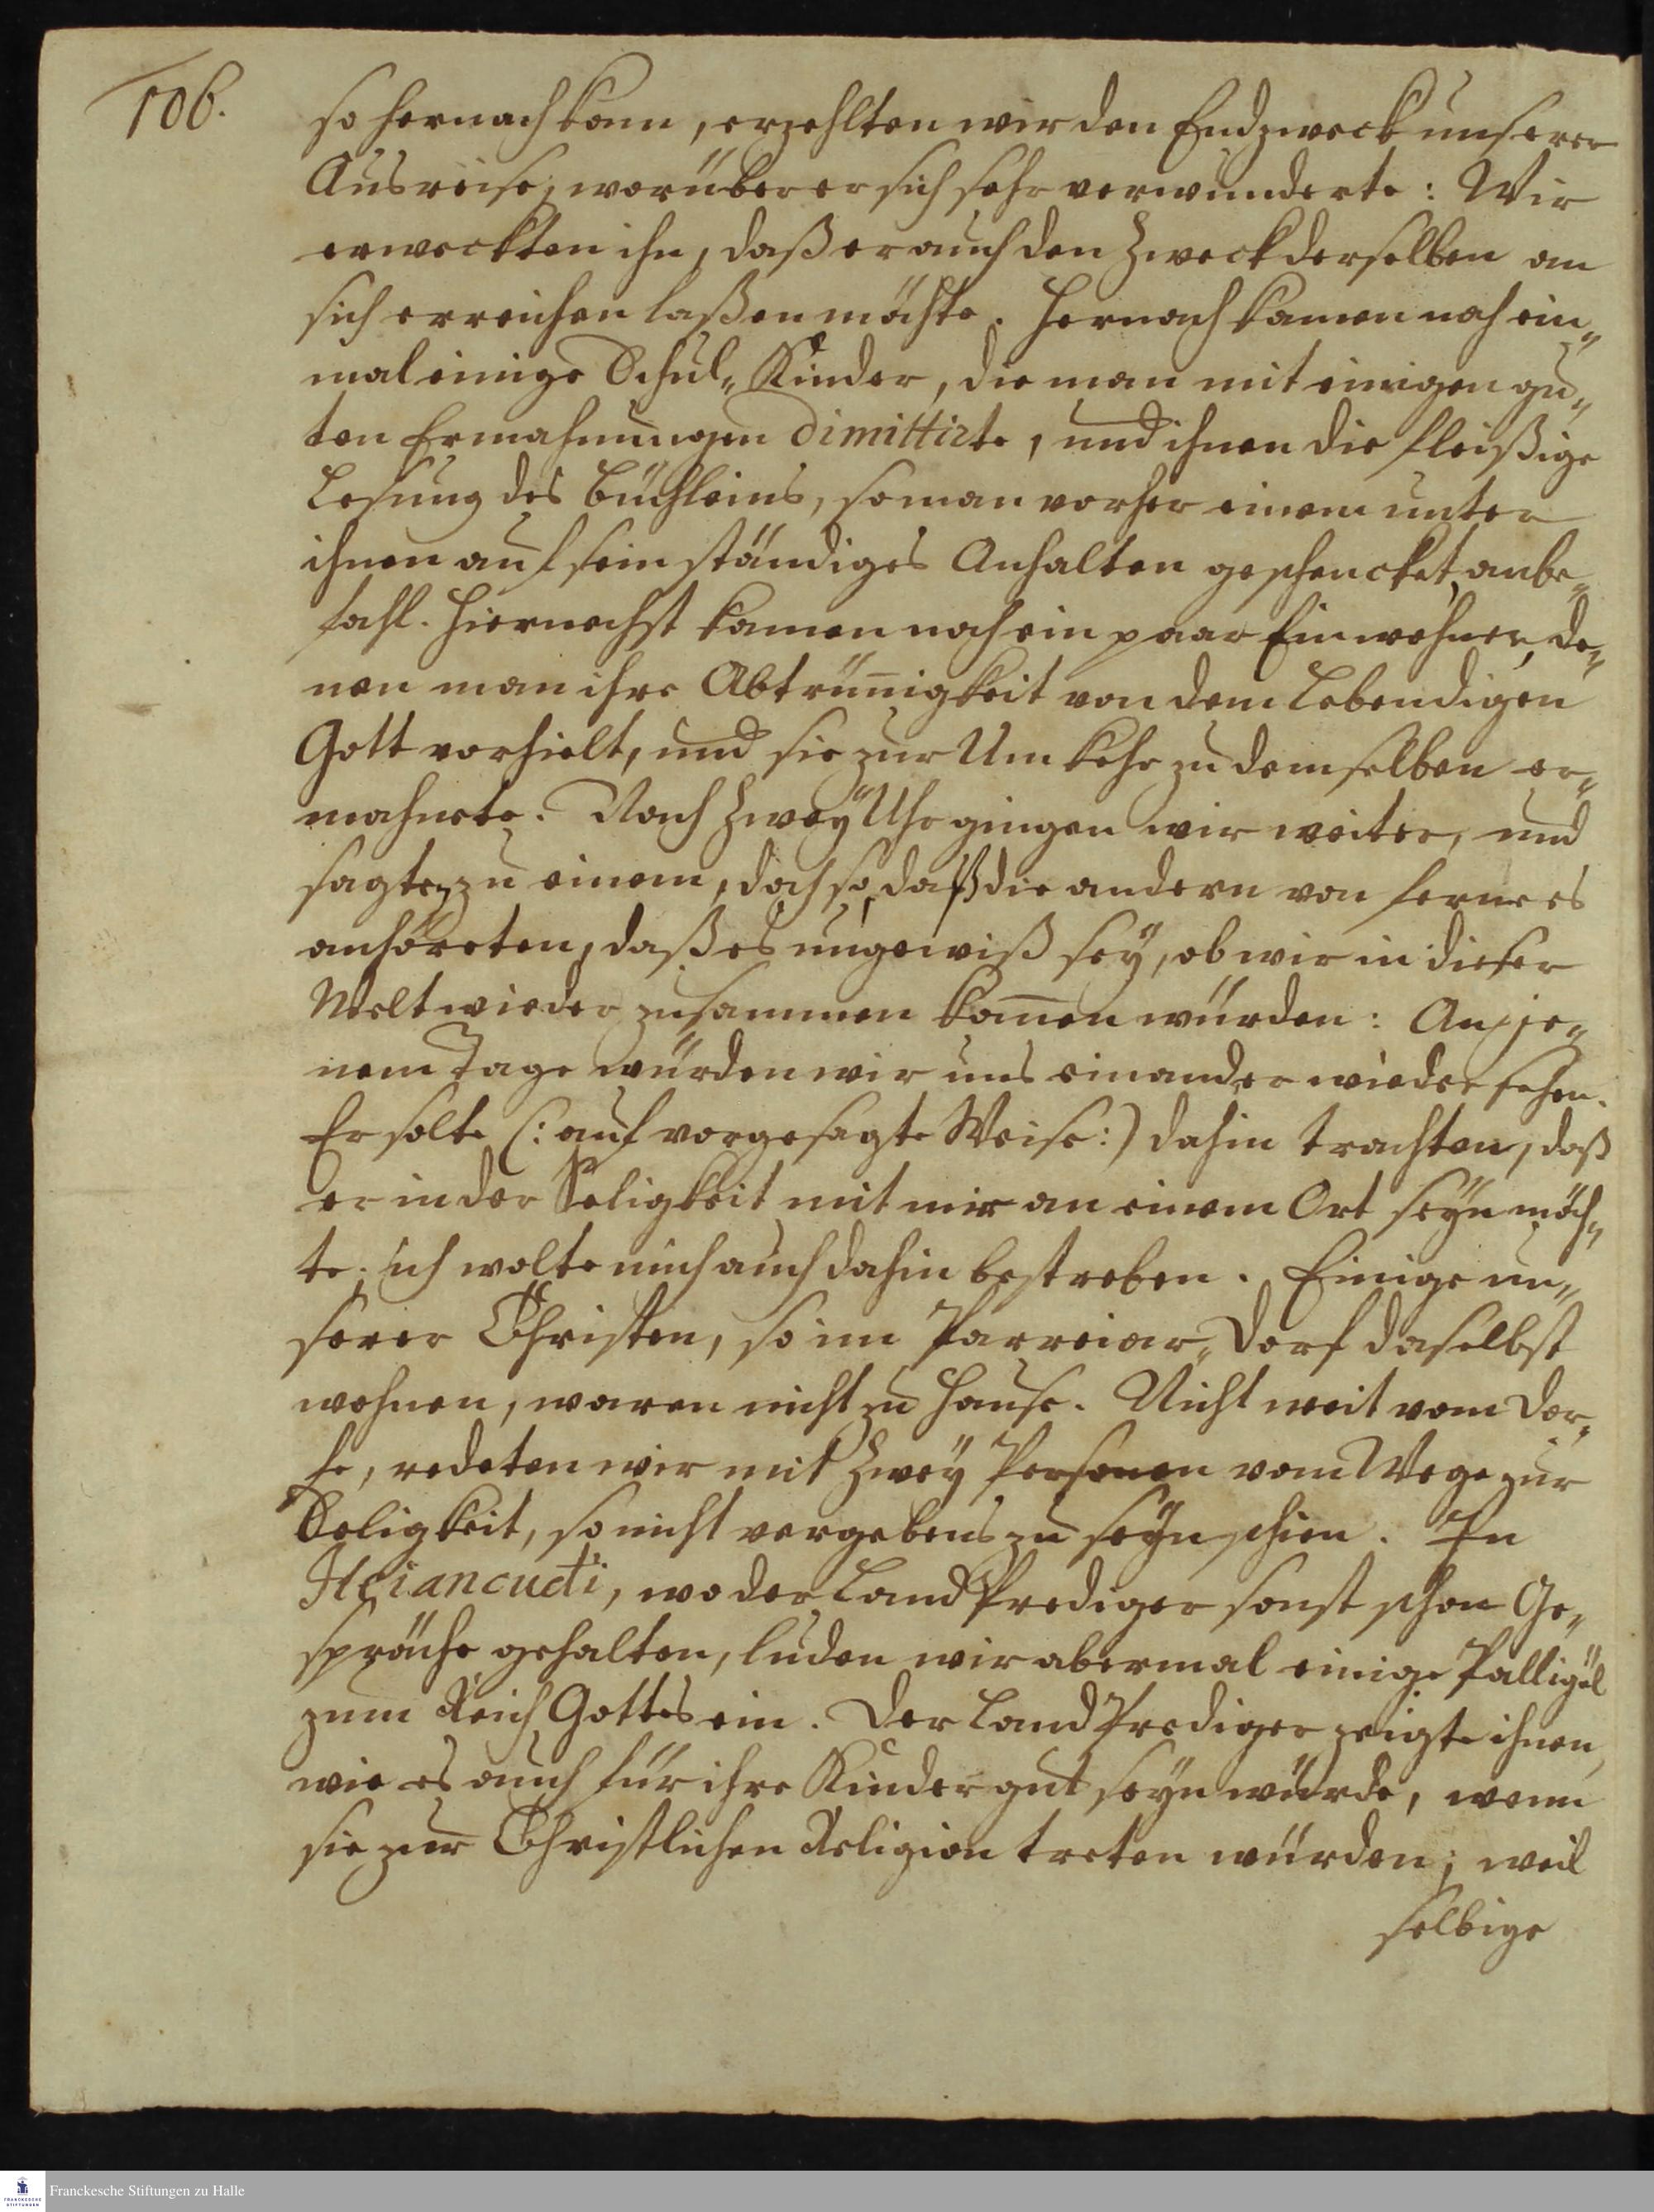 106.
so hernach kam, erzehlten wir den Endzweck unserer
Ausreise, worüber er sich sehr verwunderte: Wir
erweckten ihn, daß er auch den Zweck derselben an
sich erreichen laßen möchte. Hernach kamen noch ein„
mal einige Schul„Kinder, die man mit einigen gu„
ten Ermahnungen dimittirte, und ihnen die fleißige
Lesung des Büchleins, so man vorher einem unter
ihnen auf sein ständiges Anhalten geschencket, anbe„
fahl. Hiernechst kamen noch ein paar Einwohner, de„
nen man ihre Abtrüñigkeit von dem Lebendigen
Gott vorhielt, und sie zur Umkehr zu demselben er„
mahnete. Nach Zwey Uhr gingen wir weiter, und
sagten zu einem, doch so, daß die andern von ferne es
anhöreten, daß es ungewiß sey, ob wir in dieser
Welt wieder zusammen kom̄en würden: An je„
nem Tage würden wir uns einander wieder sehen.
Er solte (: auf vorgesagte Weise :) dahin trachten, daß
er in der Seligkeit mit mir an einem Ort seyn möch„
te; ich wolte mich auch dahin bestreben. Einige un„
serer Christen, so im Parreiar„Dorf daselbst
wohnen, waren nicht zu Hause. Nicht weit vom Dor„
fe, redeten wir mit Zwey Personen vom Wege zur
Seligkeit, so nicht vergebens zu seyn schien. In
wo der Land Prediger sonst schon Ge„
spräche gehalten, luden wir abermal einige Palligöl
zum Reich Gottes ein. Der Land Prediger zeigte ihnen,
wie es auch für ihre Kinder gut seyn würde, wenn
sie zur Christlichen Religion treten würden; weil
selbige
FRANCKESCHE
STIFTUNGEN
Franckesche Stiftungen zu Halle